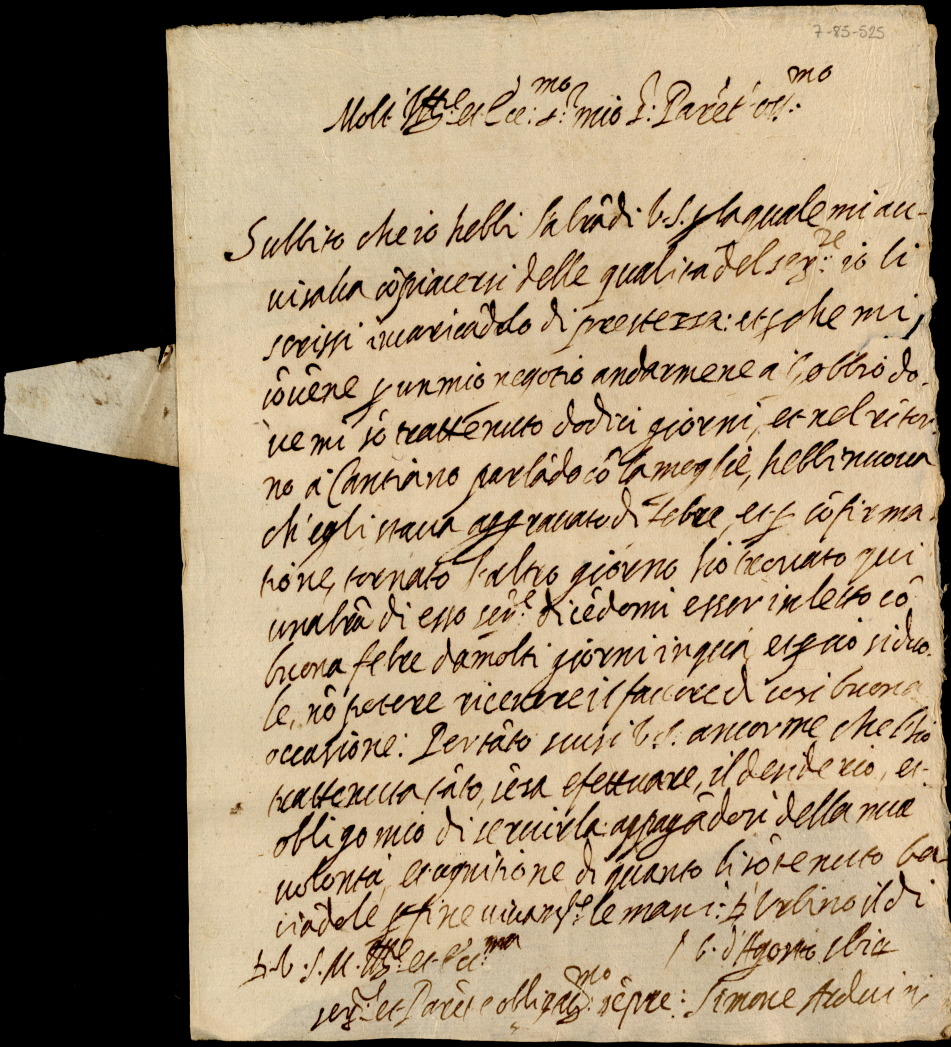 7-85-525
Molt' Ill.re et Ecc.mo S.r mio S.r Parēt' oss.mo
Subbito che io hebbi la lr̄a di V.S. p̱ la quale mi au-
uisaua cōpiacersi delle qualità del ser.re io li
scrissi incaricādolo di prestezza: et p̱che mi
cōuēne p̱ un mio negotio andarmene a Gobbio do-
ue mi sō trattenuto dodici giorni, et nel ritor
no à Cantiano parlādo cō la moglie, hebbi nuoua
ch'egli staua aggrauato di febre, et p̱ cōfirma-
tione, tornato l'altro giorno hò trouato qui
una lr̄a di esso ser.re dicēdomi esser in letto cō
buona febre da molti giorni in quà, et p̱ciò si duo-
le, nō potere riceuere il fauore di cosi buona
occasione: Pertāto scusi V.S. ancor me che l'hò
trattenuta tāto, sēza efettuare, il desiderio, et
obligo mio di seruirla: appagādosi della mia
uolontà, et cognitione di quanto li sō tenuto ba
ciādole p̱ fine le mani: D'Urbino il dì
D. V. S. M. Ill.re et Ecc.ma
V. d'Agosto
ser.re et Parēte obligat.mo sēpre: Simone Arduini